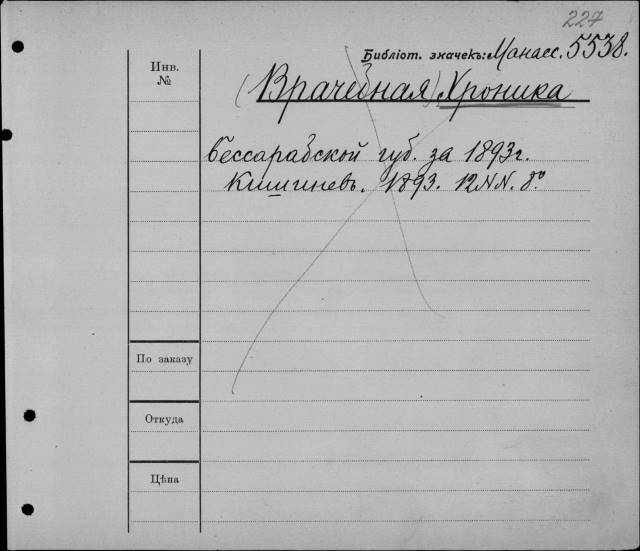 227
Библіот. значекъ: Манасс. 5538.
Инв.
№
(Врачебная) Хроника
Бессарабской губ. за 1893 г.
Кишиневъ. 1893. 12 NN. 8º
По заказу
Откуда
Цѣна